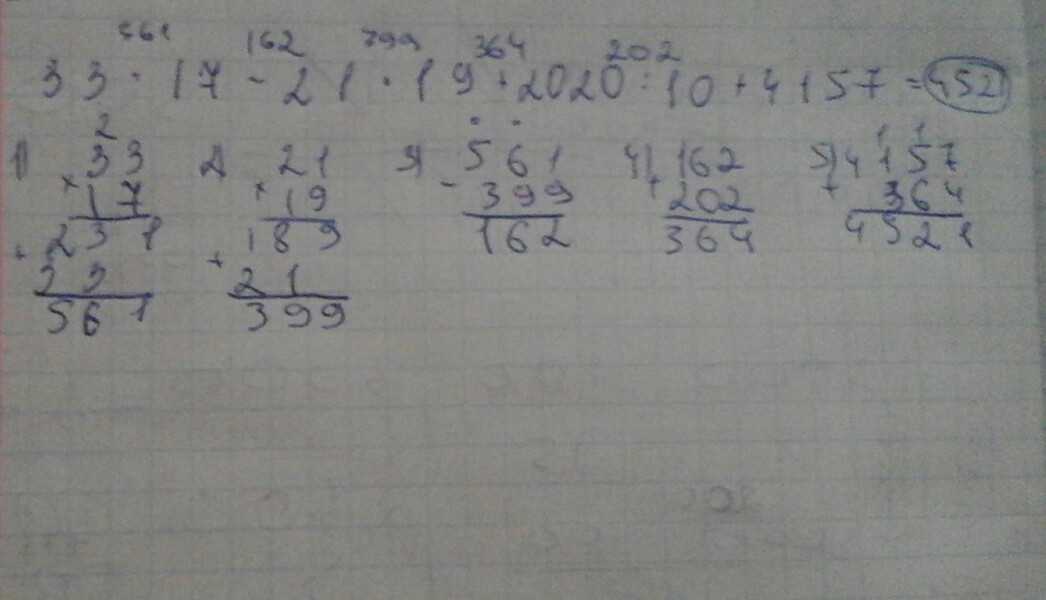 561 162 399 364 202
33 · 17 - 21 · 19 + 2020 : 10 + 4157 = 4521
2 1 1
1) 33 2) 21 3) 561 4) 162 5) 4157
× 17 × 19 - 399 + 202 + 364
231 189 162 364 4521
+ 33 + 21
561 399